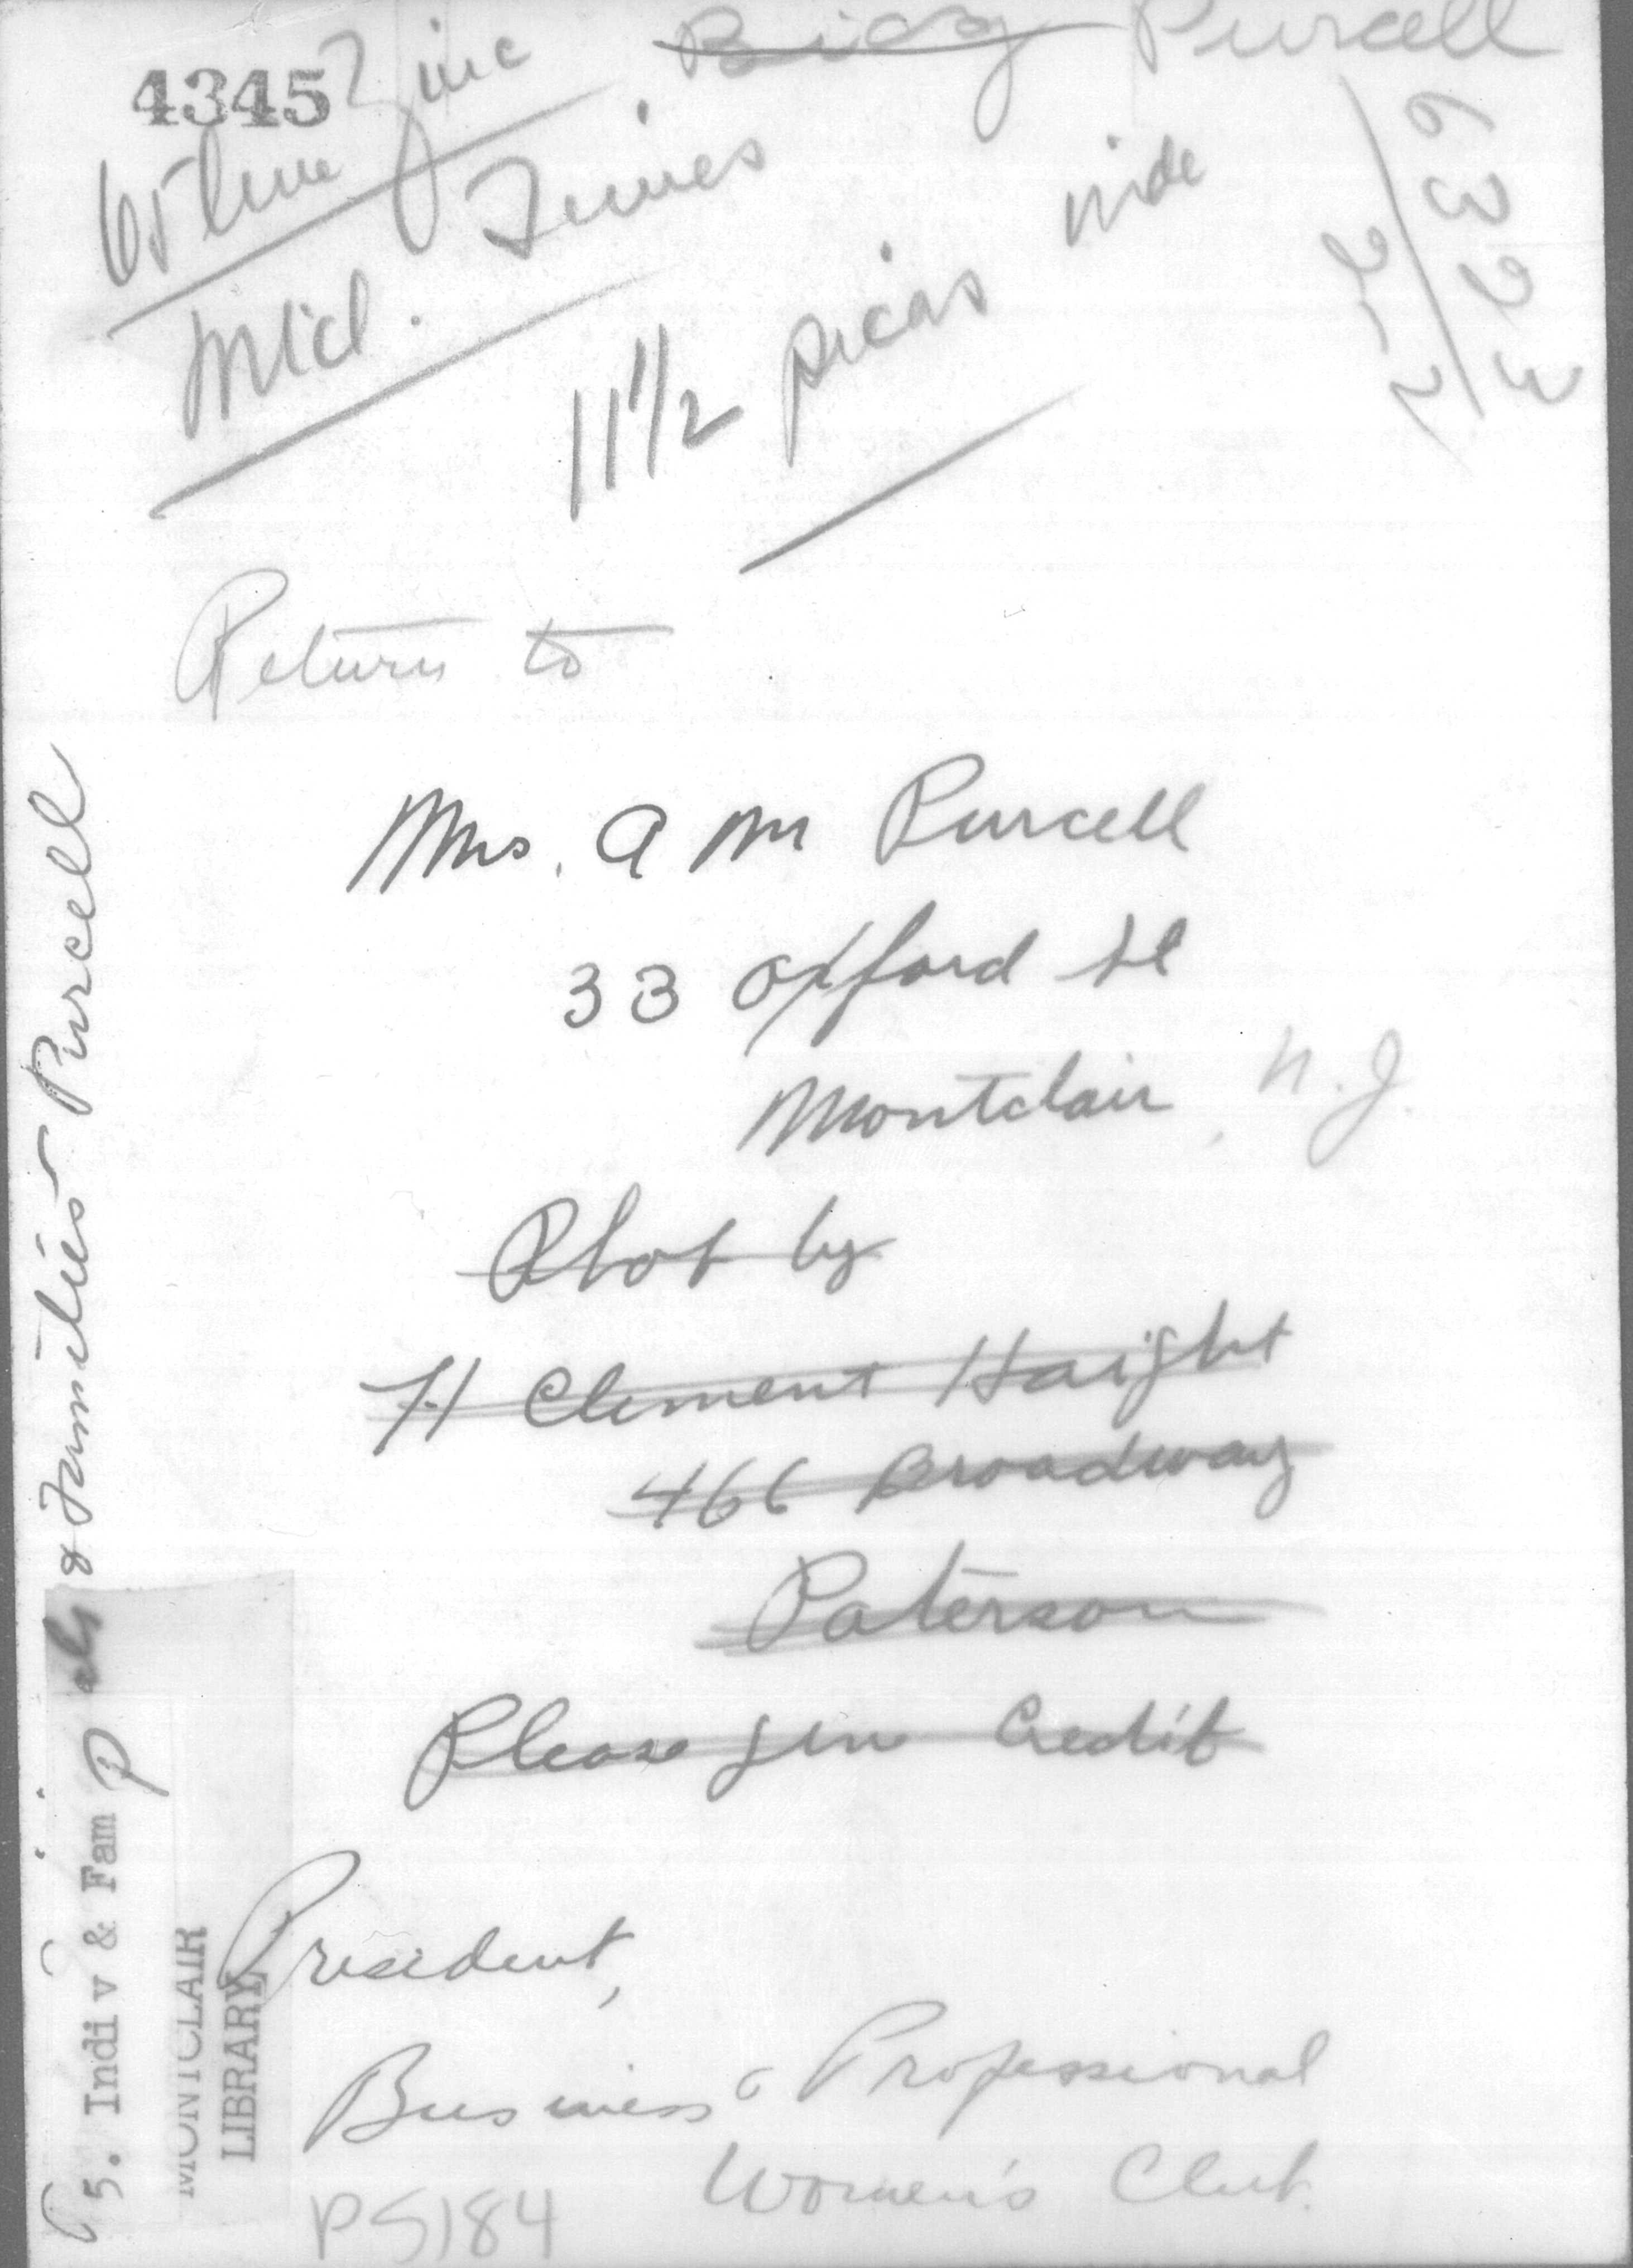 Purcell
4345
65 line Zinc
Mtcl. Times
11 1/2 picas wide
Return to
Mrs. A M Purcell
33 Oxford St
Montclair, N.J.
Phot by
H Clement Haight
466 Broadway
Paterson
Please give Credit
President,
Business & Professional
Women's Club.
PS184
& Families - Purcell
5. Indiv & Fam P
MONTCLAIR
LIBRARY